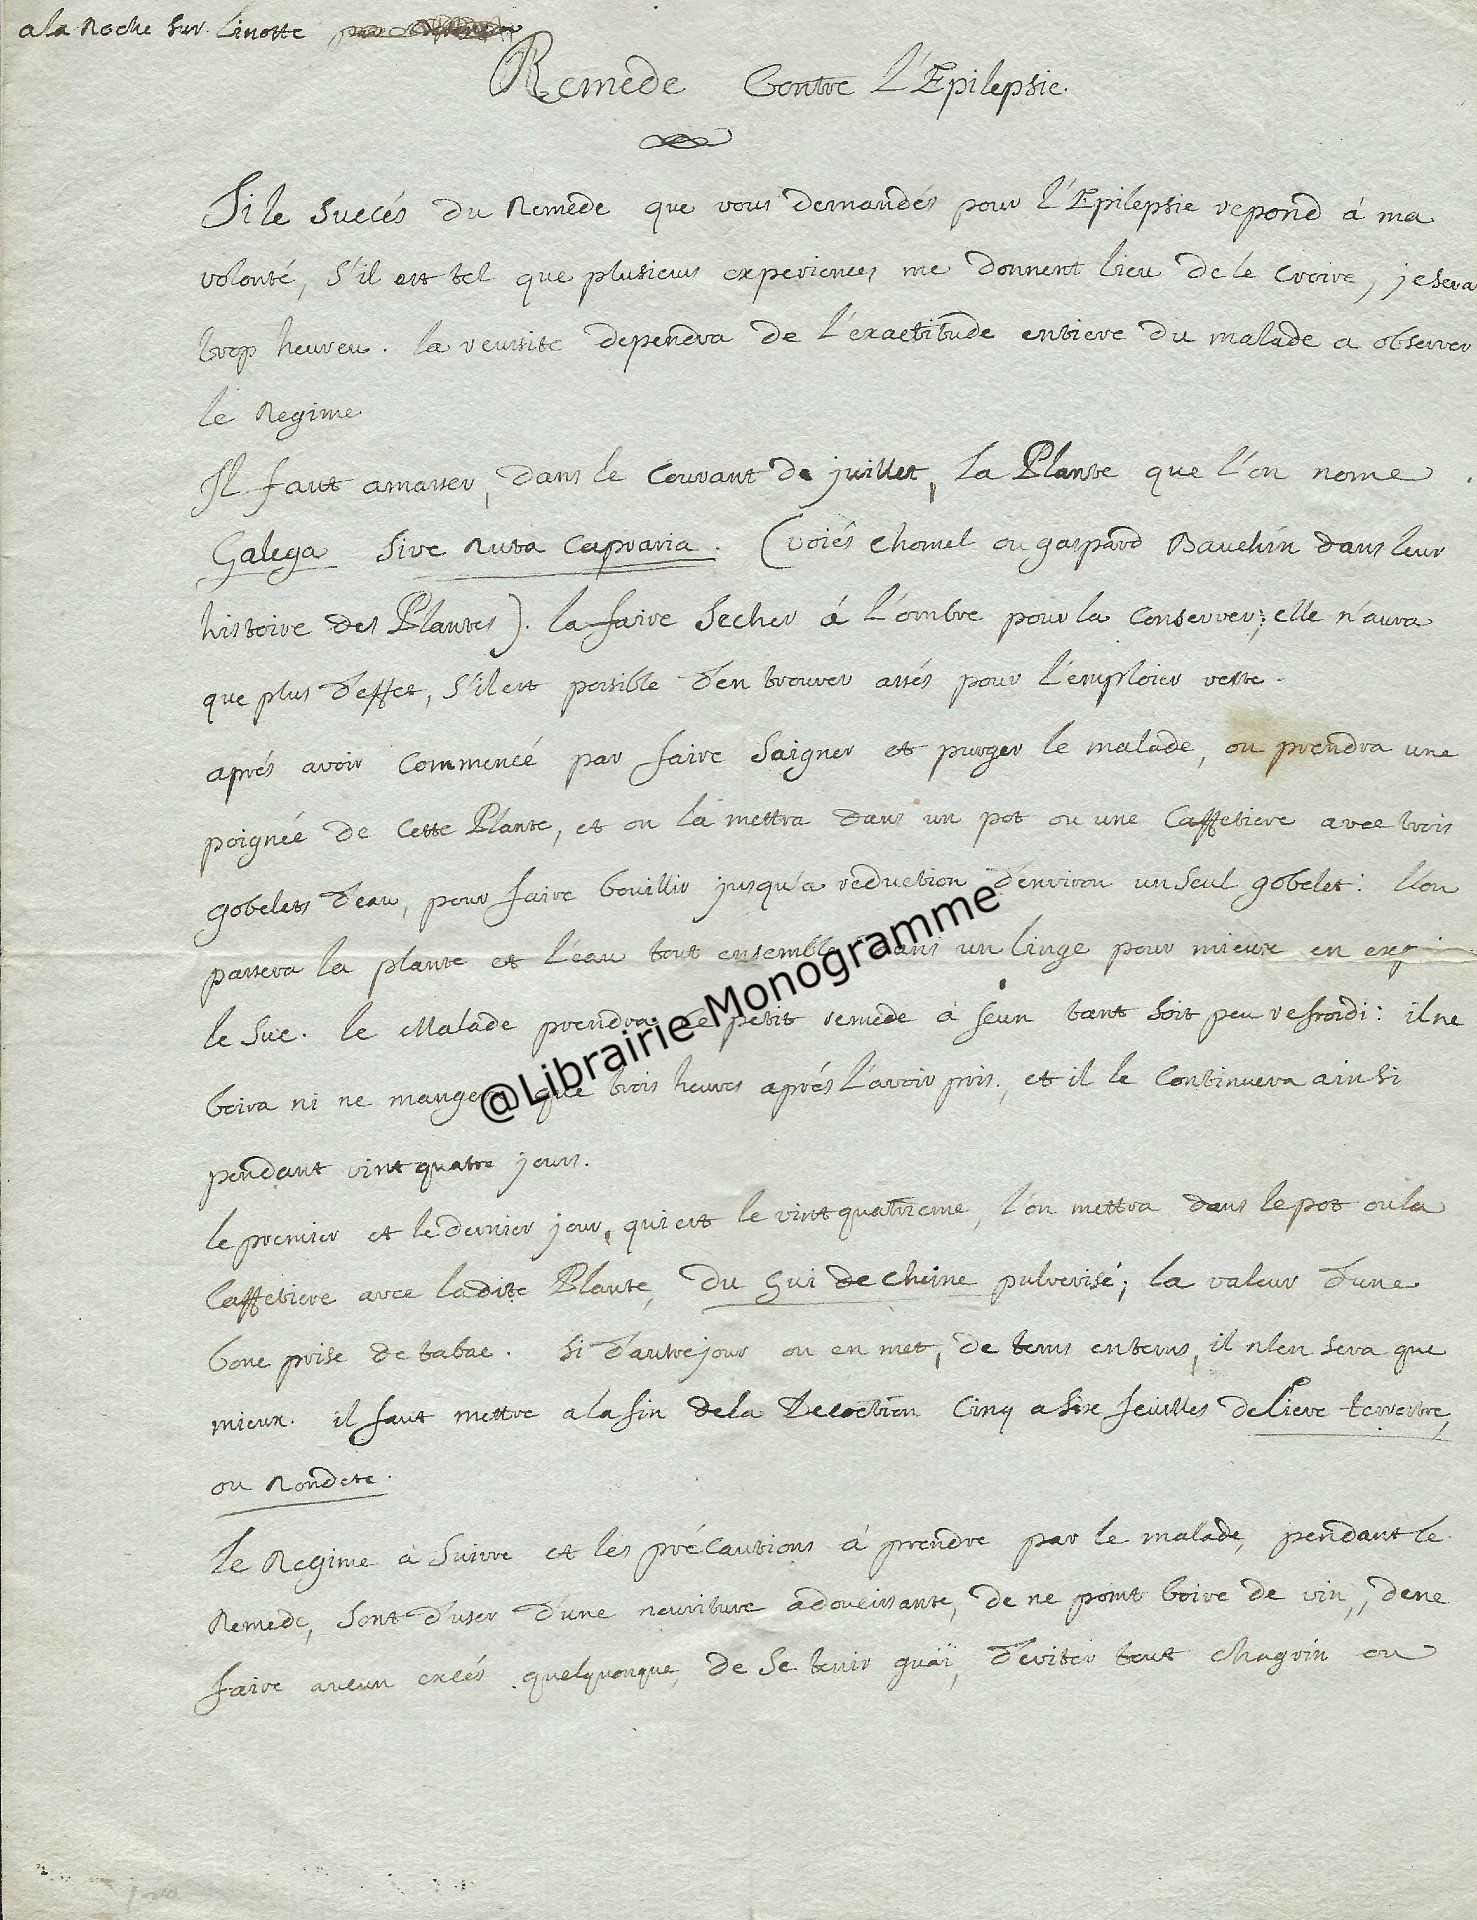 a la Roche sur Linotte
Remede Contre L'Epilepsie.
Si le succés du Remede que vous demandés pour l'Epilepsie repond á ma
volonté, s'il est tel que plusieurs experiences me donnent lieu de le croire, je sera
trop heureu. la reusite dependra de l'exactitude entiere du malade a observer
le Regime
Il faut amasser, dans le Courant de juillet, la Plante que l'on nome
Galega sive Ruta Capraria. (voiés Chomel ou gaspard Bauchin dans leur
histoire des Plantes). la faire Secher á l'ombre pour la Conserver; elle n'aura
que plus d'effet, s'il est possible d'en trouver assés pour l'emploier verte.
aprés avoir Commencé par faire Saigner et purger le malade, on prendra une
poignée de Cette Plante, et on la mettra dans un pot ou une Caffetiere avec trois
gobelets d'eau, pour faire bouillir jusqu'a reduction d'environ un seul gobelet: l'on
passera la plante et l'eau tout ensemble dans un linge pour mieux en
le Suc. le Malade prendra ce petit remede á jeun tant soit peu refroidi: il ne
boira ni ne mangera que trois heures aprés l'avoir pris, et il le Continuera ainsi
pendant vint quatre jours.
le premier et le dernier jour, qui est le vint quatrieme, l'on mettra dans le pot ou la
Caffetiere avec ladite Plante, du Gui de cheine pulverisé; la valeur d'une
bone prise de tabac. Si d'autre jour on en met, de tems en tems, il n'en sera que
mieux. il faut mettre a la fin de la Decoction Cinq a six feuilles de Liere terrestre,
ou Rondete.
Le Regime a Suivre et les précautions á prendre par le malade, pendant le
Remede, sont d'user d'une nouriture adoucissante, de ne point boire de vin, de ne
faire aucun excés quelquonque, de se tenir guaï, d'eviter tout chagrin ou
@Librairie Monogramme